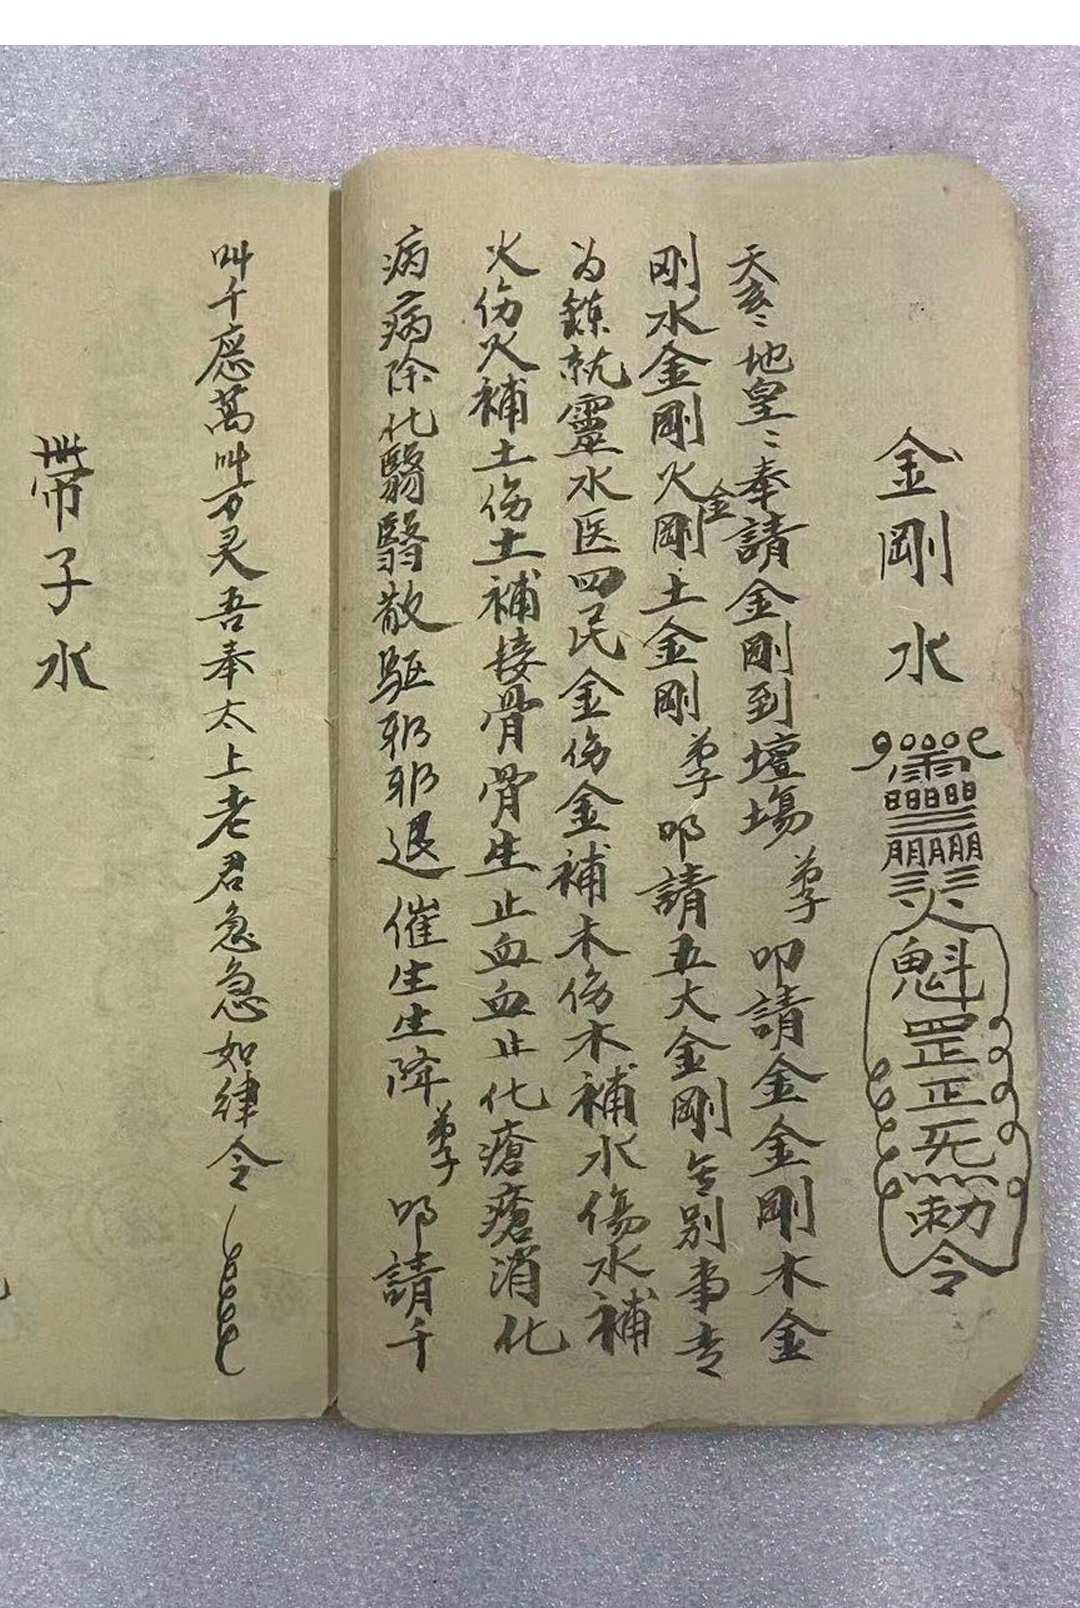 金剛水
魁罡正炁勅令
天奎〻地皇〻奉請金剛到壇場弟子叩請金金剛木金
剛水金剛火金剛土金剛弟子叩請五大金剛無別事专
为鍊就靈水医四民金伤金補木伤木補水傷水補
火伤火補土伤土補接骨骨生止血血止化瘡瘡消化
病病除化翳翳散驱邪邪退催生生降弟子叩請千
叫千應萬叫万灵吾奉太上老君急急如律令
帶子水